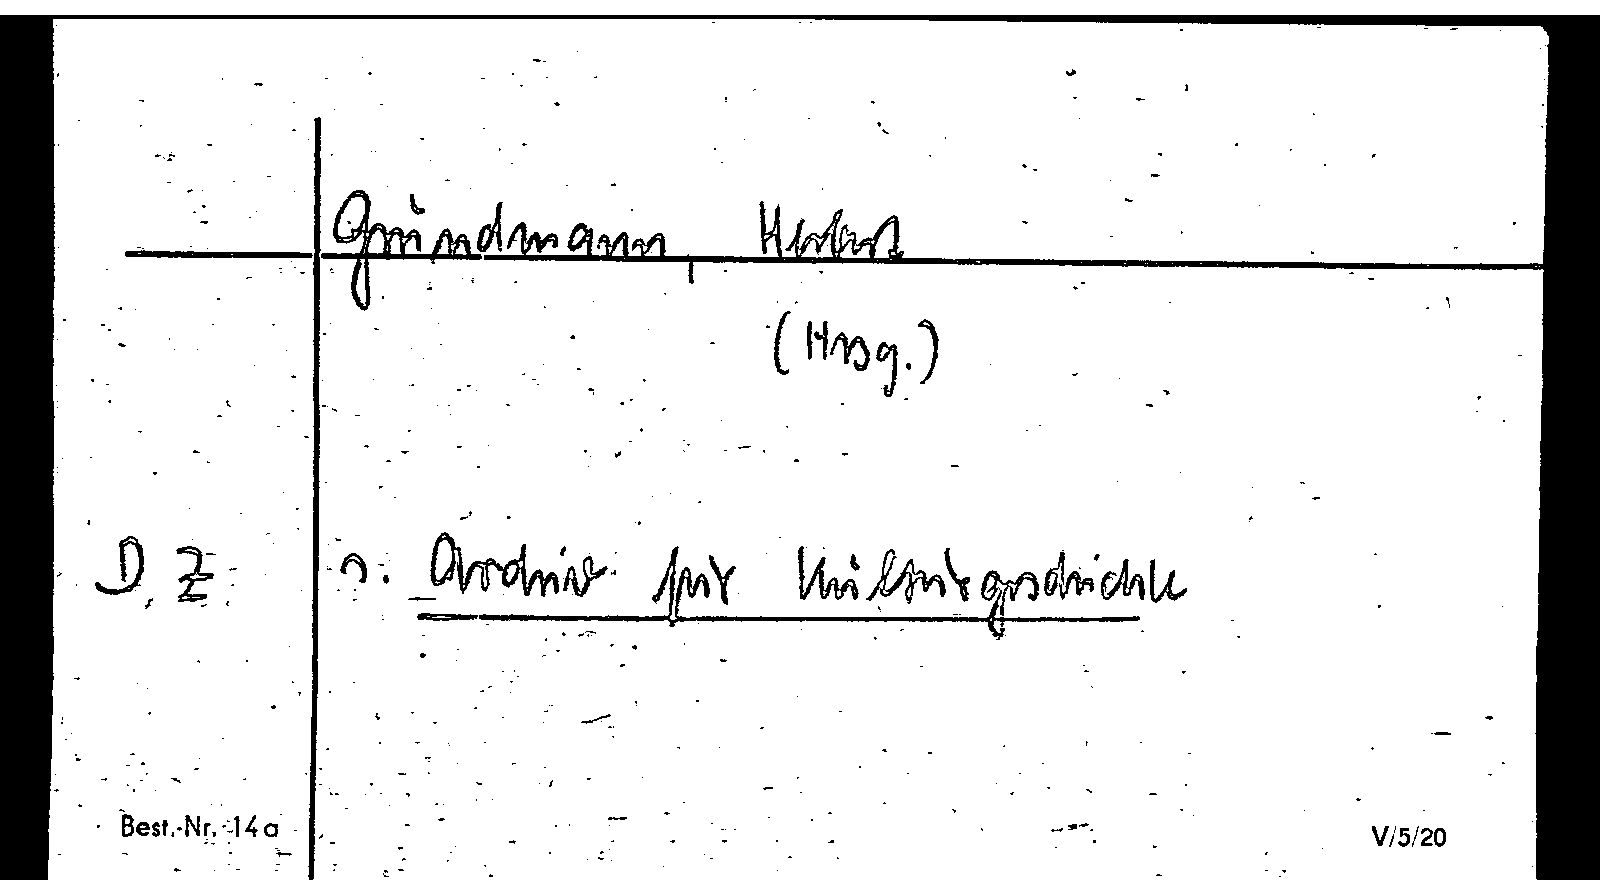 Grundmann, Herbert
(Hrsg.)
D. Z s. Archiv für Kulturgeschichte
Best.-Nr. 14a V/5/20